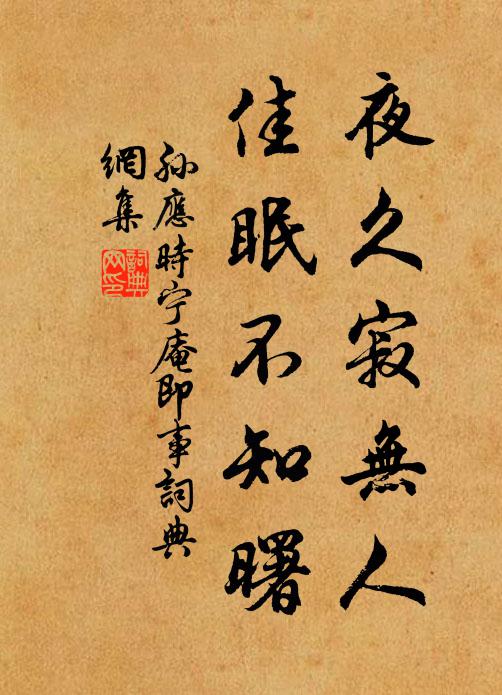 夜久寂無人
佳眠不知曙
孫應時宁庵即事詞典
網集
詞典網印